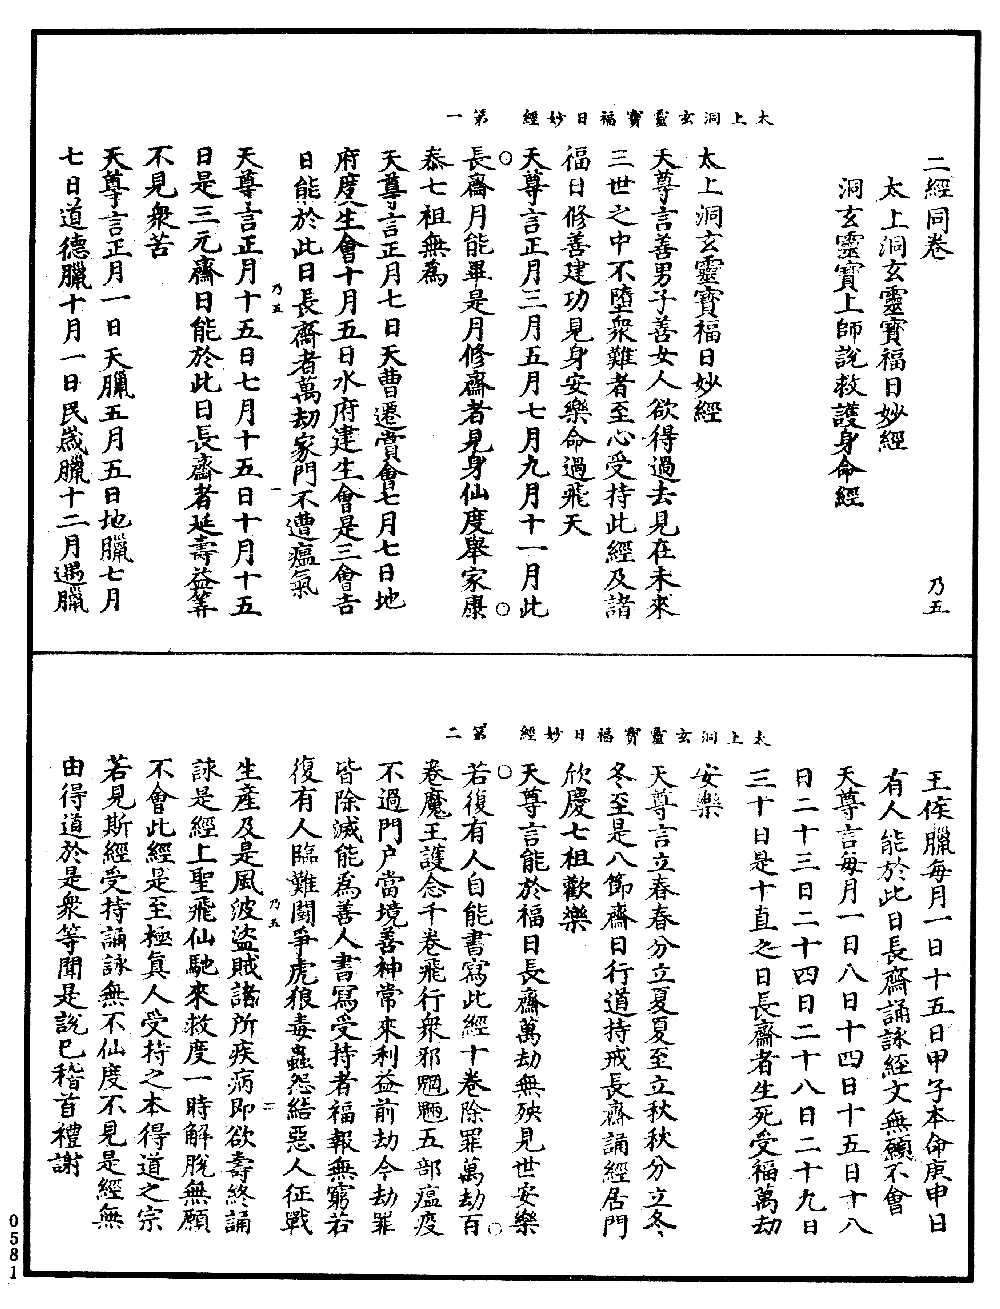 二經同卷 乃五
太上洞玄靈寶福日妙經
洞玄靈寶上師說救護身命經
太上洞玄靈寶福日妙經 第一
太上洞玄靈寶福日妙經
天尊言善男子善女人欲得過去見在未來
三世之中不墮衆難者至心受持此經及諸
福日修善建功見身安樂命過飛天
天尊言正月三月五月七月九月十一月此
長齋月能畢是月修齋者見身仙度舉家康
泰七祖無爲
天尊言正月七日天曹遷賞會七月七日地
府度生會十月五日水府建生會是三會吉
日能於此日長齋者萬劫家門不遭瘟氣
乃五 一
天尊言正月十五日七月十五日十月十五
日是三元齋日能於此日長齋者延壽益筭
不見衆苦
天尊言正月一日天臘五月五日地臘七月
七日道德臘十月一日民歲臘十二月遇臘
太上洞玄靈寶福日妙經 第二
王侯臘每月一日十五日甲子本命庚申日
有人能於此日長齋誦詠經文無願不會
天尊言每月一日八日十四日十五日十八
日二十三日二十四日二十八日二十九日
三十日是十直之日長齋者生死受福萬劫
安樂
天尊言立春春分立夏夏至立秋秋分立冬
冬至是八節齋日行道持戒長齋誦經居門
欣慶七祖歡樂
天尊言能於福日長齋萬劫無殃見世安樂
若復有人自能書寫此經十卷除罪萬劫百
卷魔王護念千卷飛行衆邪魍魎五部瘟疫
不過門户當境善神常來利益前劫今劫罪
皆除滅能爲善人書寫受持者福報無窮若
復有人臨難鬭爭虎狼毒蟲怨結惡人征戰
乃五 二
生產及是風波盜賊諸所疾病即欲壽終誦
詠是經上聖飛仙馳來救度一時解脫無願
不會此經是至極眞人受持之本得道之宗
若見斯經受持誦詠無不仙度不見是經無
由得道於是衆等聞是說已稽首禮謝
0581